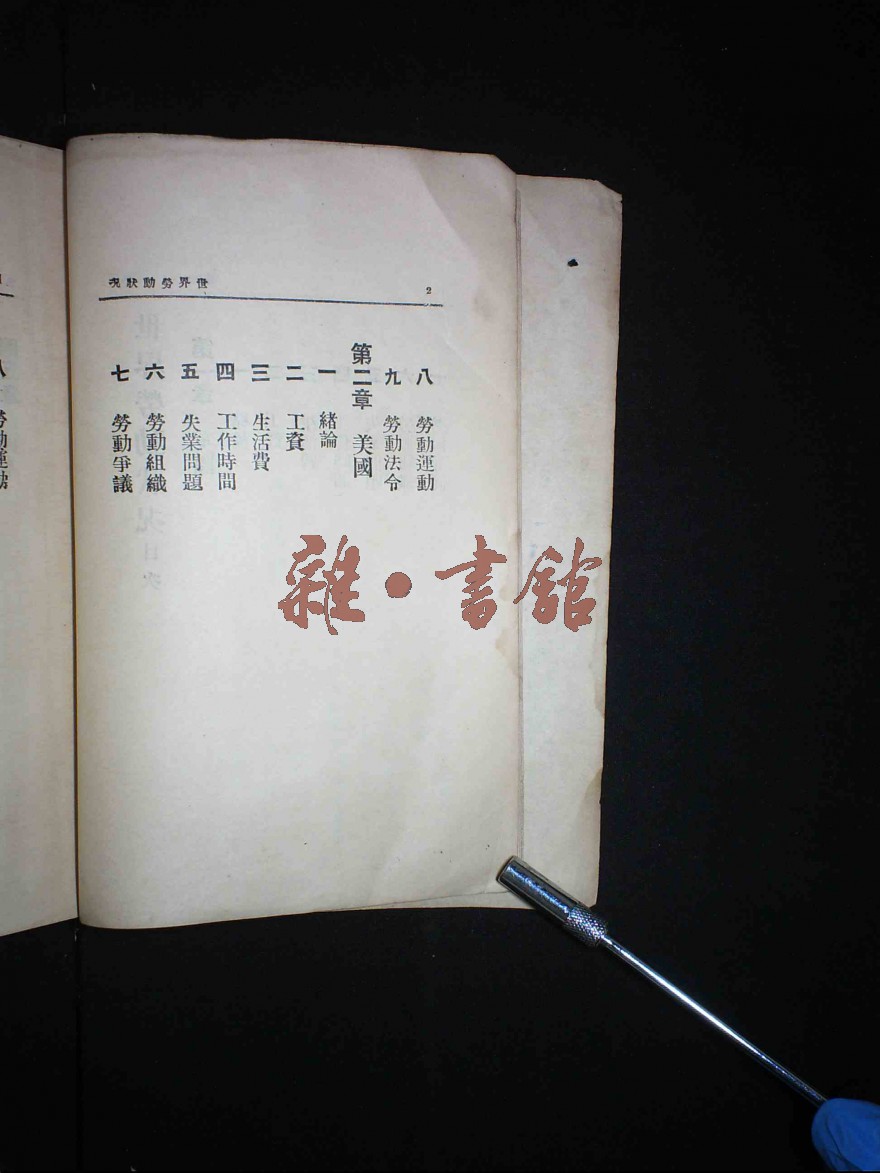 世界勞動狀況
2
八 勞動運動
九 勞動法令
第二章 美國
一 緒論
二 工資
三 生活費
四 工作時間
五 失業問題
六 勞動組織
七 勞動爭議
八 勞動運動
雜·書館